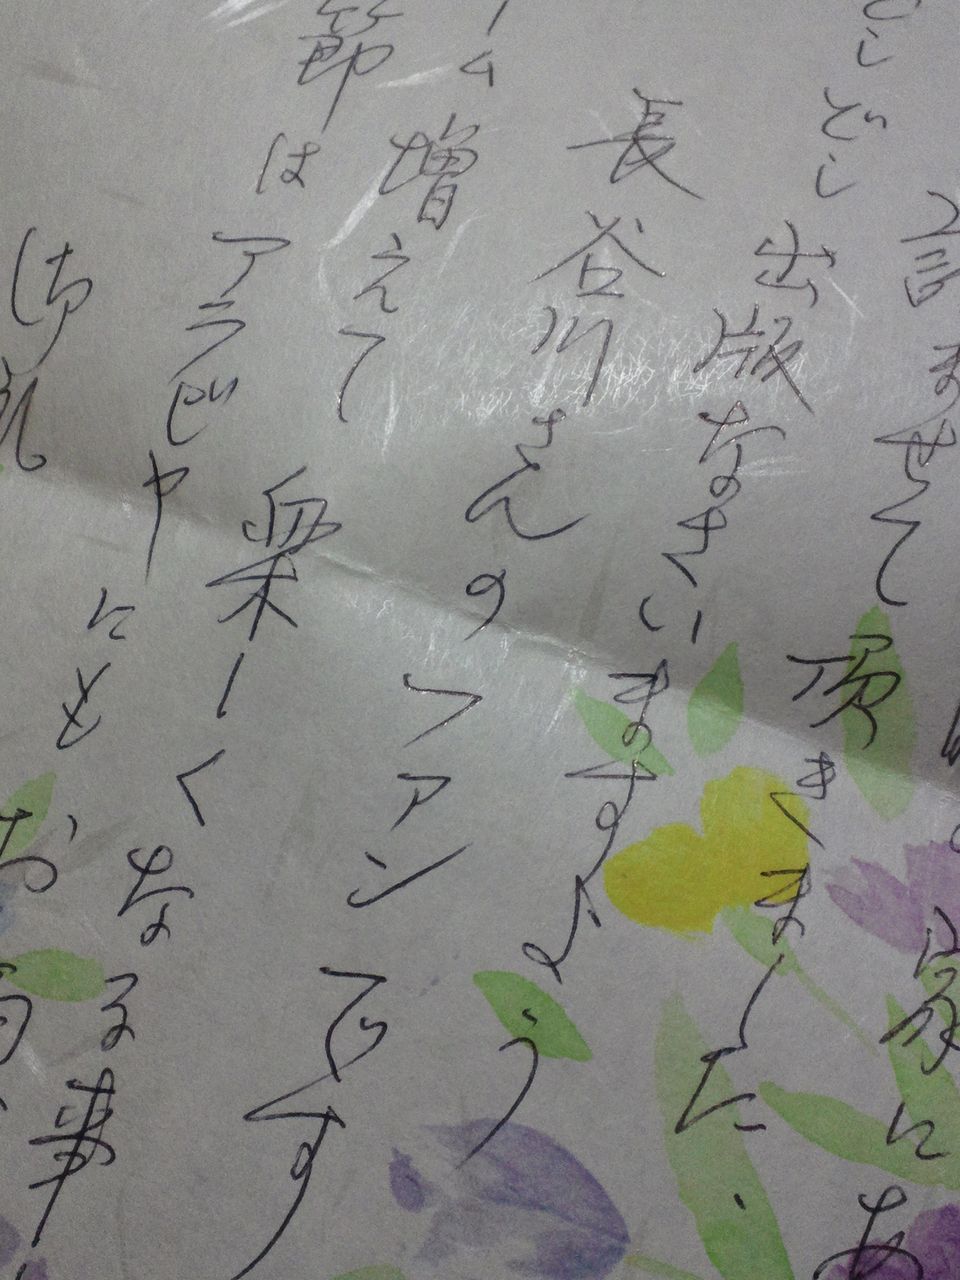 家にあ
ませて頂きました.
どしどし出版なさいますよう
長谷川さんのファンです
ム増えて楽しくなる事
節はアラビヤにもお
御礼